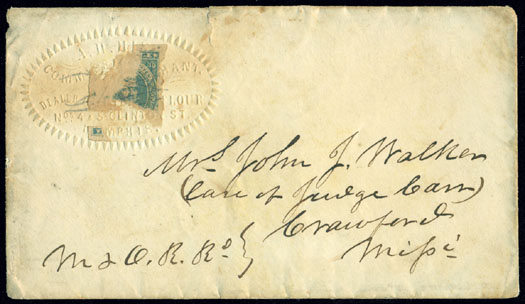 COMM ANT.
DEALER LOUR
ST.
MEMPHIS.
Mrs John J. Walker
(Care of Judge Carr)
Crawford
Missi
M & O. R. Rd }